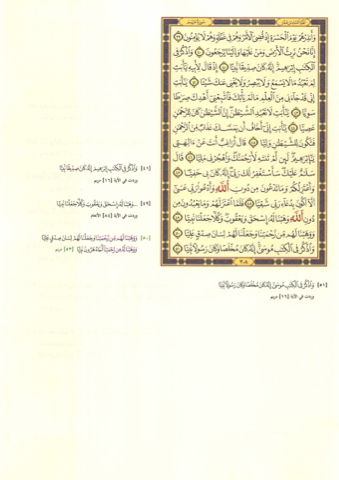 سورة مريم
وَأَنذِرْهُمْ يَوْمَ الْحَسْرَةِ إِذْ قُضِيَ الْأَمْرُ وَهُمْ فِي غَفْلَةٍ وَهُمْ لَا يُؤْمِنُونَ ٣٩
إِنَّا نَحْنُ نَرِثُ الْأَرْضَ وَمَنْ عَلَيْهَا وَإِلَيْنَا يُرْجَعُونَ ٤٠ وَاذْكُرْ فِي
الْكِتَٰبِ إِبْرَٰهِيمَ إِنَّهُ كَانَ صِدِّيقًا نَّبِيًّا ٤١ إِذْ قَالَ لِأَبِيهِ يَٰٓأَبَتِ
لِمَ تَعْبُدُ مَا لَا يَسْمَعُ وَلَا يُبْصِرُ وَلَا يُغْنِي عَنكَ شَيْئًا ٤٢ يَٰٓأَبَتِ
إِنِّي قَدْ جَآءَنِي مِنَ الْعِلْمِ مَا لَمْ يَأْتِكَ فَاتَّبِعْنِيٓ أَهْدِكَ صِرَٰطًا
سَوِيًّا ٤٣ يَٰٓأَبَتِ لَا تَعْبُدِ الشَّيْطَٰنَ إِنَّ الشَّيْطَٰنَ كَانَ لِلرَّحْمَٰنِ
عَصِيًّا ٤٤ يَٰٓأَبَتِ إِنِّيٓ أَخَافُ أَن يَمَسَّكَ عَذَابٌ مِّنَ الرَّحْمَٰنِ
فَتَكُونَ لِلشَّيْطَٰنِ وَلِيًّا ٤٥ قَالَ أَرَاغِبٌ أَنتَ عَنْ ءَالِهَتِي
يَٰٓإِبْرَٰهِيمُ لَئِن لَّمْ تَنتَهِ لَأَرْجُمَنَّكَ وَاهْجُرْنِي مَلِيًّا ٤٦ قَالَ
سَلَٰمٌ عَلَيْكَ سَأَسْتَغْفِرُ لَكَ رَبِّيٓ إِنَّهُ كَانَ بِي حَفِيًّا ٤٧
وَأَعْتَزِلُكُمْ وَمَا تَدْعُونَ مِن دُونِ اللَّهِ وَأَدْعُوا رَبِّي عَسَىٰٓ
أَلَّآ أَكُونَ بِدُعَآءِ رَبِّي شَقِيًّا ٤٨ فَلَمَّا اعْتَزَلَهُمْ وَمَا يَعْبُدُونَ مِن
دُونِ اللَّهِ وَهَبْنَا لَهُٓ إِسْحَٰقَ وَيَعْقُوبَ وَكُلًّا جَعَلْنَا نَبِيًّا ٤٩
وَوَهَبْنَا لَهُم مِّن رَّحْمَتِنَا وَجَعَلْنَا لَهُمْ لِسَانَ صِدْقٍ عَلِيًّا ٥٠
وَاذْكُرْ فِي الْكِتَٰبِ مُوسَىٰٓ إِنَّهُ كَانَ مُخْلَصًا وَكَانَ رَسُولًا نَّبِيًّا ٥١
٣٠٨
[٤١] وَاذْكُرْ فِي الْكِتَٰبِ إِبْرَٰهِيمَ إِنَّهُ كَانَ صِدِّيقًا نَّبِيًّا
وردت في الآية [١٦] مريم
[٤٩] ...وَهَبْنَا لَهُٓ إِسْحَٰقَ وَيَعْقُوبَ وَكُلًّا جَعَلْنَا نَبِيًّا
وردت في الآية [٨٤] الأنعام
[٥٠] وَوَهَبْنَا لَهُم مِّن رَّحْمَتِنَا وَجَعَلْنَا لَهُمْ لِسَانَ صِدْقٍ عَلِيًّا
وَوَهَبْنَا لَهُ مِن رَّحْمَتِنَآ أَخَاهُ هَٰرُونَ نَبِيًّا [٥٣] مريم
[٥١] وَاذْكُرْ فِي الْكِتَٰبِ مُوسَىٰٓ إِنَّهُ كَانَ مُخْلَصًا وَكَانَ رَسُولًا نَّبِيًّا
وردت في الآية [١٦] مريم